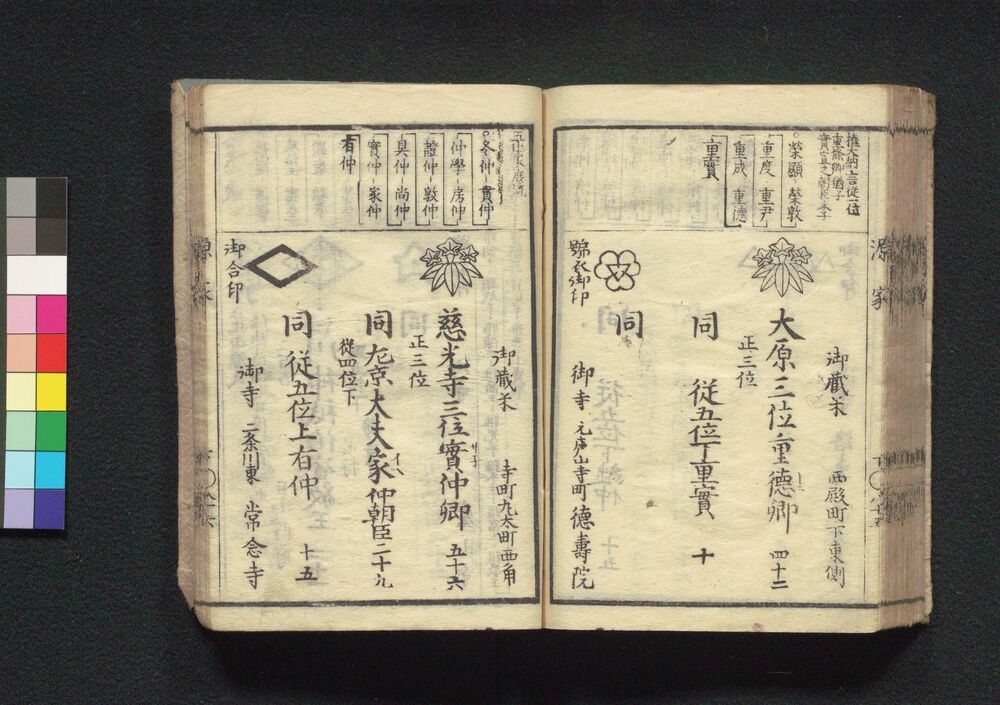 源家
權大納言從一位
重條卿猶子
榮顯 榮敦
重度 重尹
重成 重德
重實
御藏米 西殿町下東側
大原三位重德卿 四十二
正三位
同 從五位下重實 十
同
御寺 元庐山寺町 德壽院
御印
五辻家庶流
冬仲 貫仲
仲學 房仲
證仲 敦仲
具仲 尚仲
實仲 家仲
有仲
御藏米 寺町丸太町西角
慈光寺三位實仲卿 五十六
正三位
同 左京大夫家仲朝臣 二十九
從四位下
同 從五位上有仲 十五
御寺 二条川東 常念寺
御合印
源家